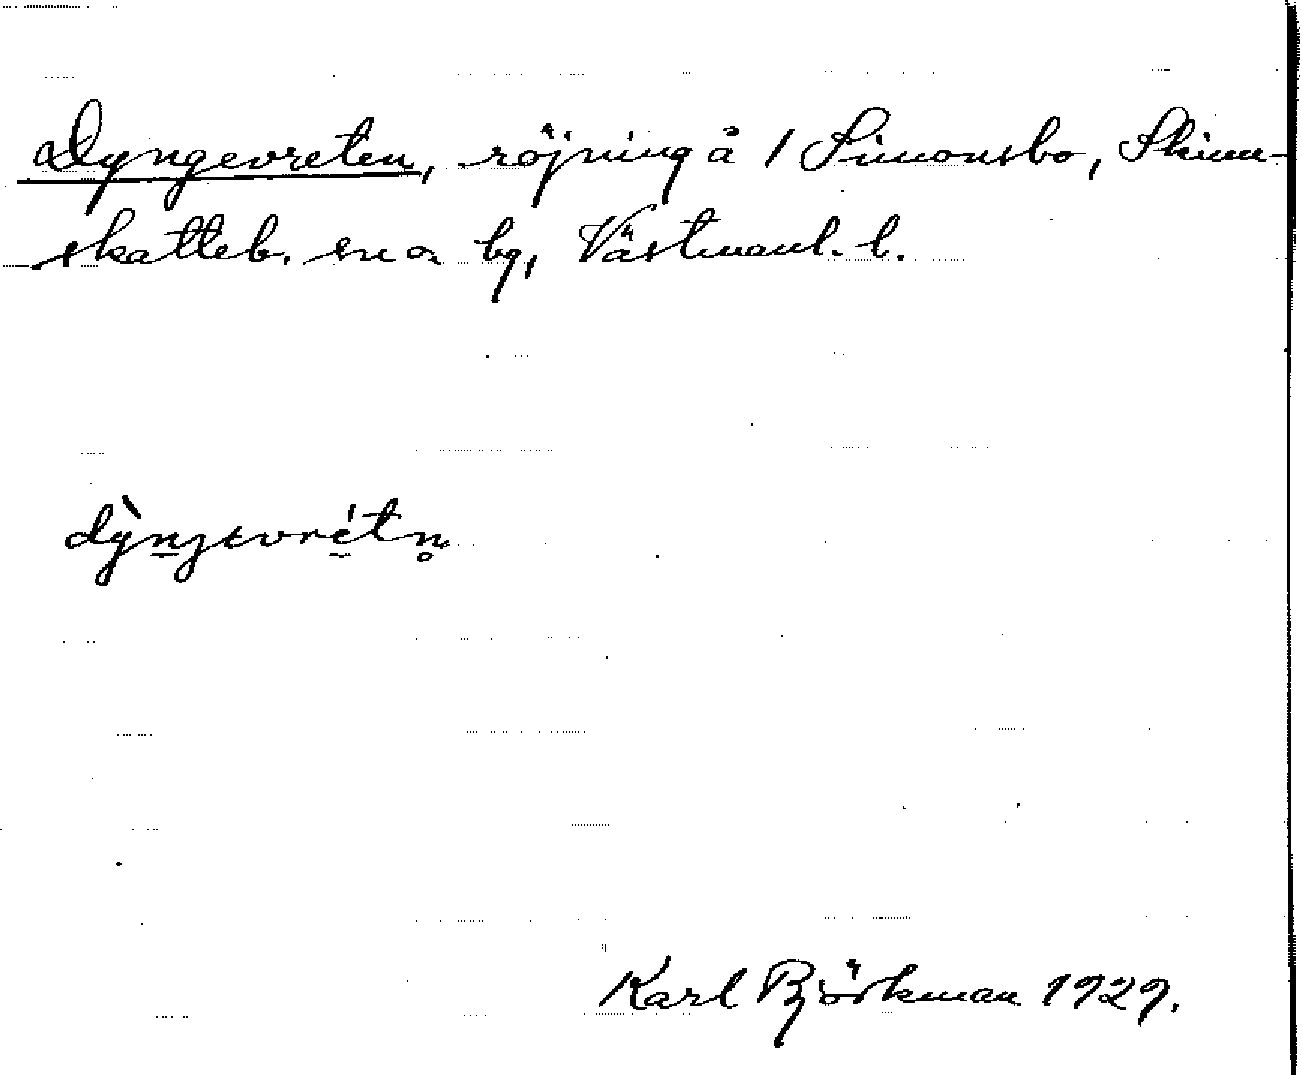 Dyngevreten, röjning å 1 Simonsbo, Skinn-
skatteb. sn o bg, Västmanl. l.
dỳnjevrétn̥
Karl Björkman 1929.